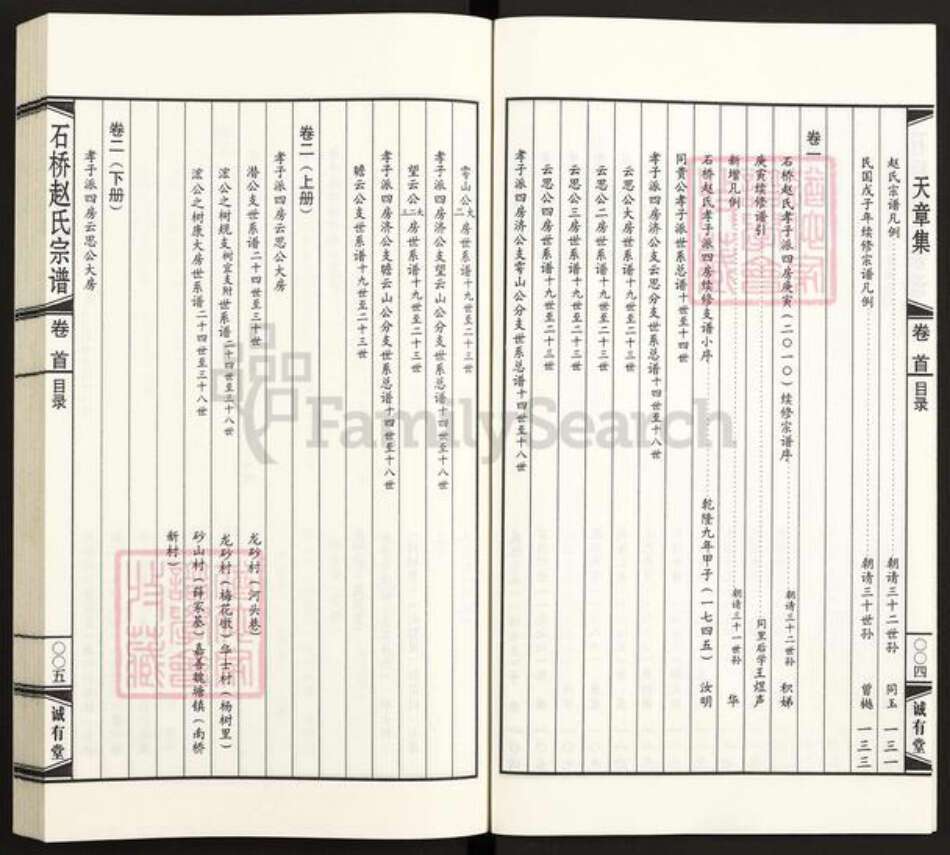 天章集
卷首
目录
〇〇四
诚有堂
赵氏宗谱凡例 朝请三十二世孙 同玉 一三一
民国戊子年续修宗谱凡例 朝请三十世孙 曾樾 一三三
卷一
石桥赵氏孝子派四房庚寅（二〇一〇）续修宗谱序 朝请三十二世孙 积娣
庚寅续修谱引 同里后学王煜声
新增凡例 朝请三十一世孙 华
石桥赵氏孝子派四房续修支谱小序 乾隆九年甲子（一七四五） 汝明
同贵公孝子派世系总谱十世至十四世
孝子派四房济公支云思分支世系总谱十四世至十八世
云思公大房世系谱十九世至二十三世
云思公二房世系谱十九世至二十三世
云思公三房世系谱十九世至二十三世
云思公四房世系谱十九世至二十三世
孝子派四房济公支雩山公分支世系总谱十四世至十八世
雩山公大二房世系谱十九世至二十三世
孝子派四房济公支望云山公分支世系总谱十四世至十八世
望云公大二三房世系谱十九世至二十三世
孝子派四房济公支瞻云山公分支世系总谱十四世至十八世
瞻云公支世系谱十九世至二十三世
卷二（上册）
孝子派四房云思公大房
潜公支世系谱二十四世至三十世 龙砂村（河头巷）
浤公之树规支树宜支附世系谱二十四世至三十八世 龙砂村（梅花墩）华士村（杨树里）
浤公之树康大房世系谱二十四世至三十八世 砂山村（薛家基）嘉善魏塘镇（南桥
新村）
卷二（下册）
孝子派四房云思公大房
石桥赵氏宗谱
卷首
目录
〇〇五
诚有堂
FamilySearch